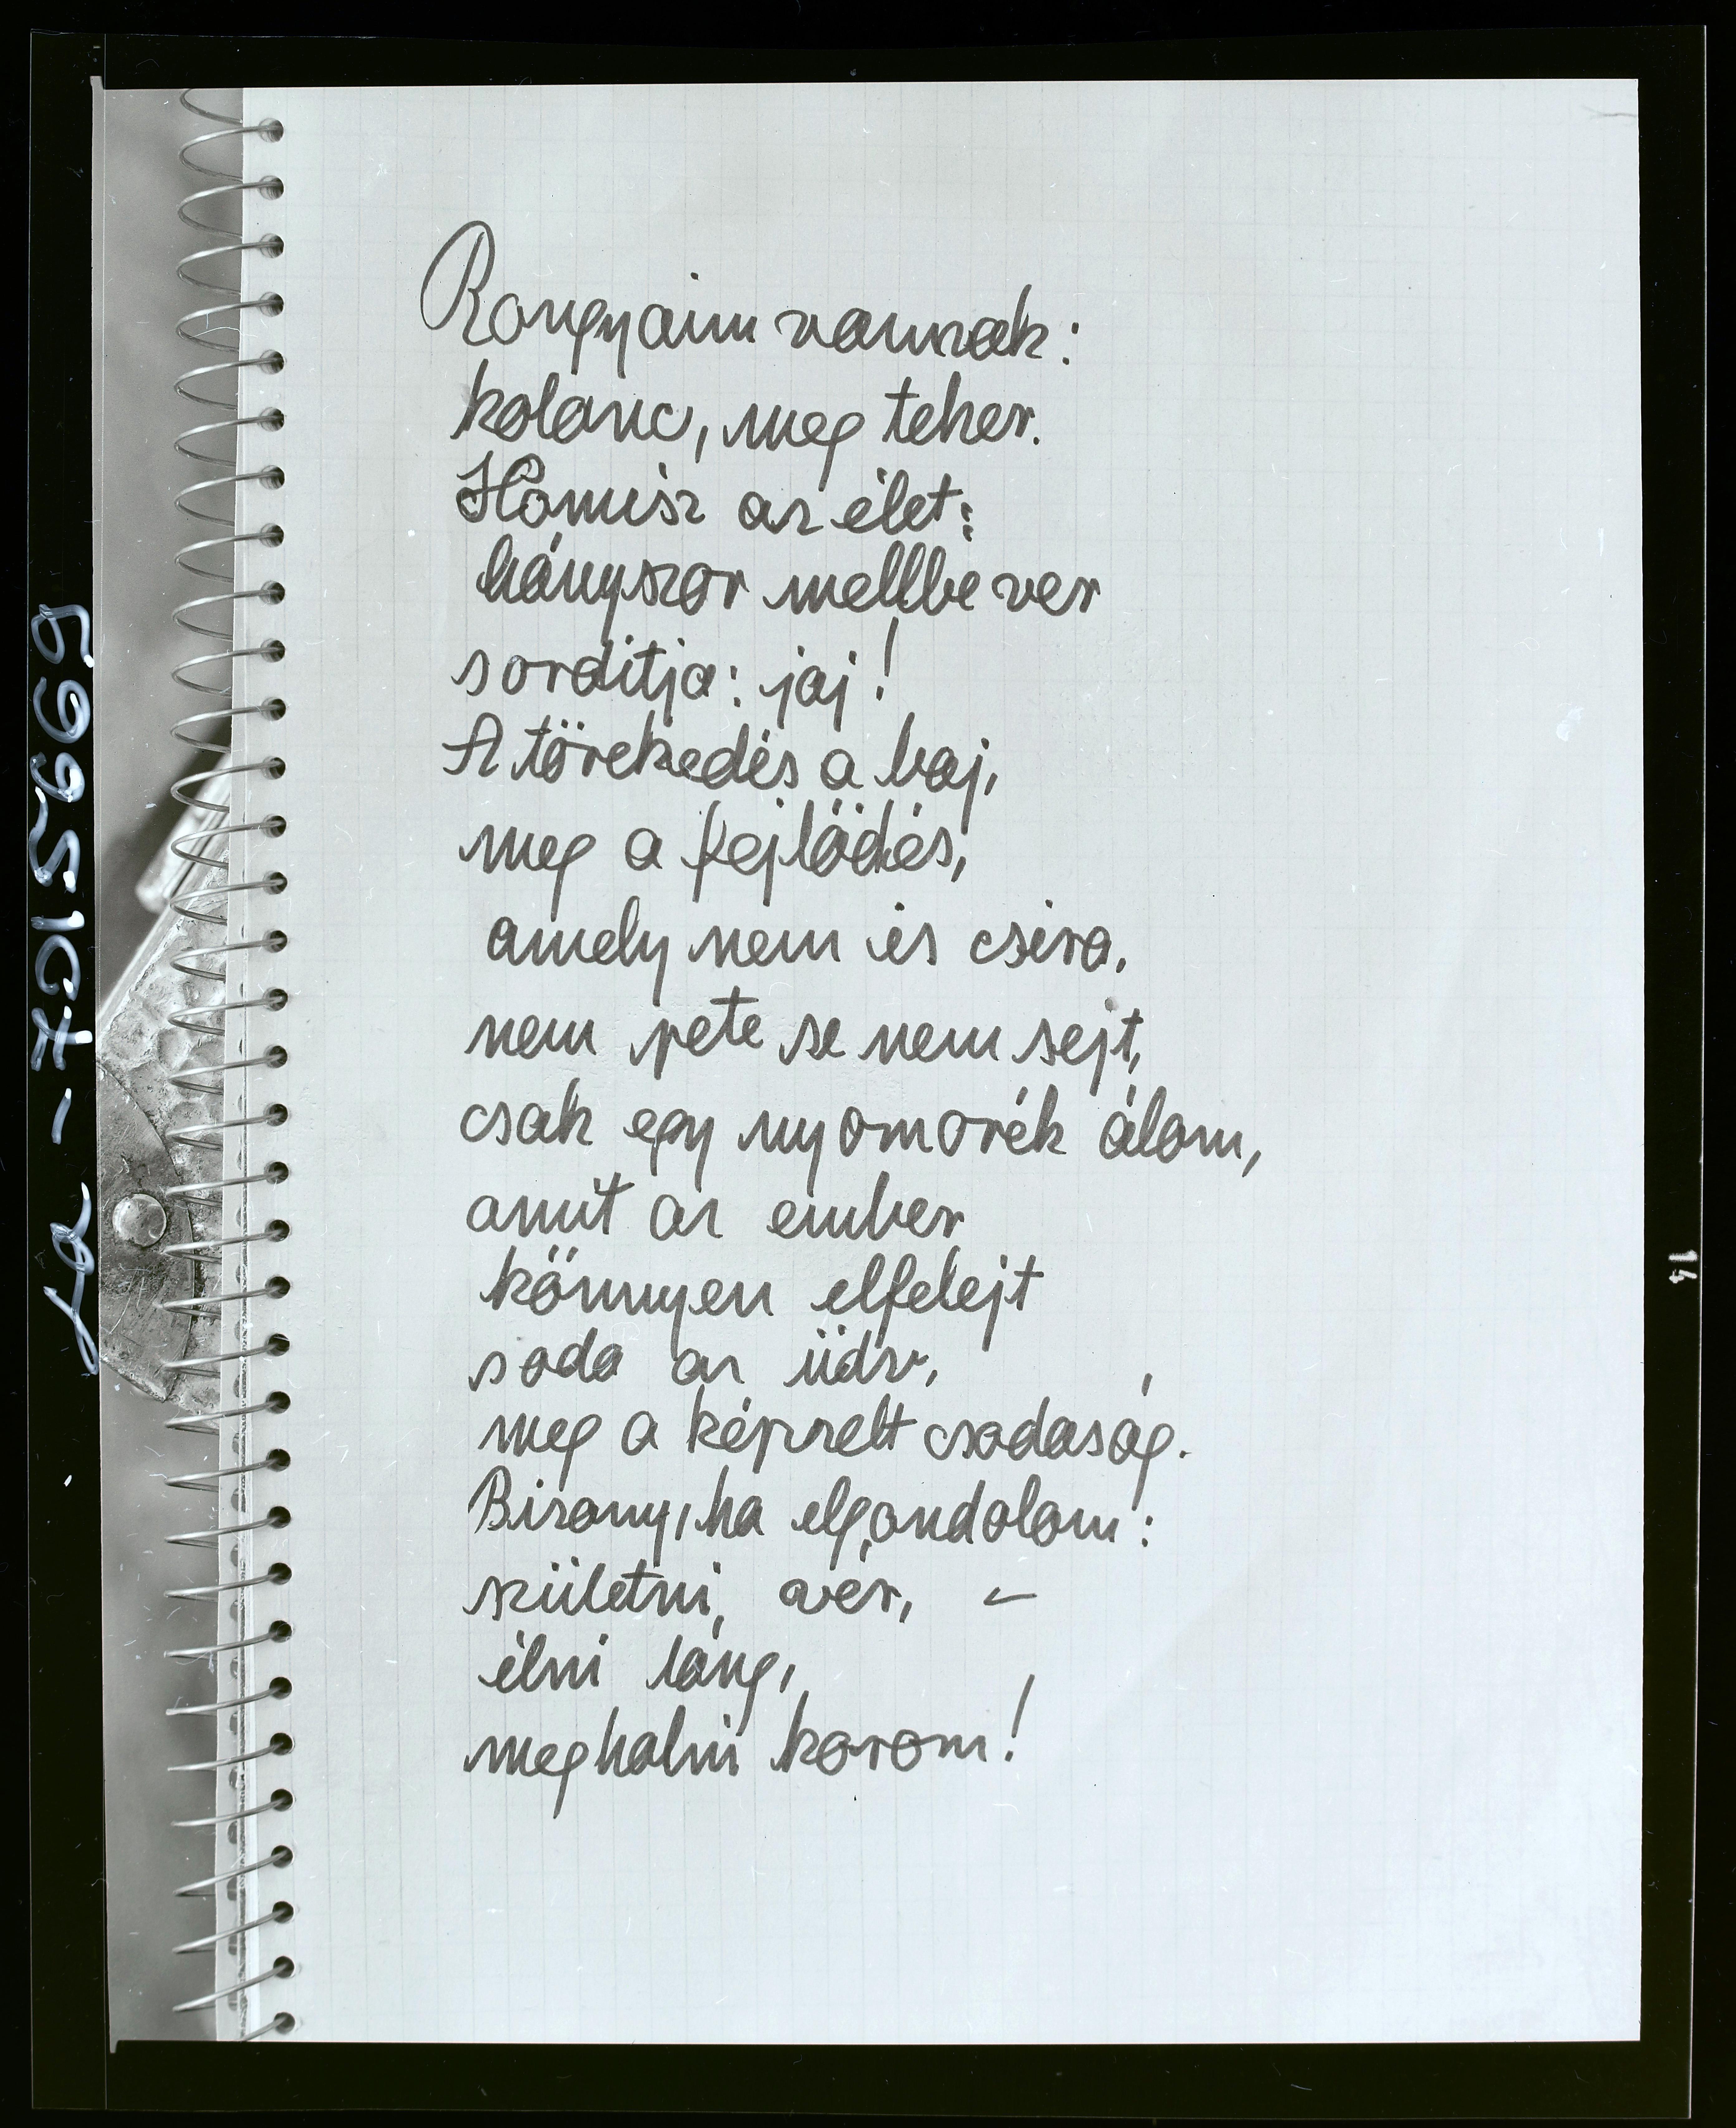 Rongyaim vannak:
kolonc, meg teher.
Hamisz az élet:
hányszor mellbe ver
s orditja: jaj!
A törekedés a baj,
meg a fejlödés,
amely nem is csira,
nem pete se nem sejt,
csak egy nyomorék álom,
amit az ember
könnyen elfelejt
s oda az üdv,
meg a képzelt csodaság.
Bizony, ha elgondolom:
születni, a vér, –
élni láng,
meghalni korom!
La-7015669
14